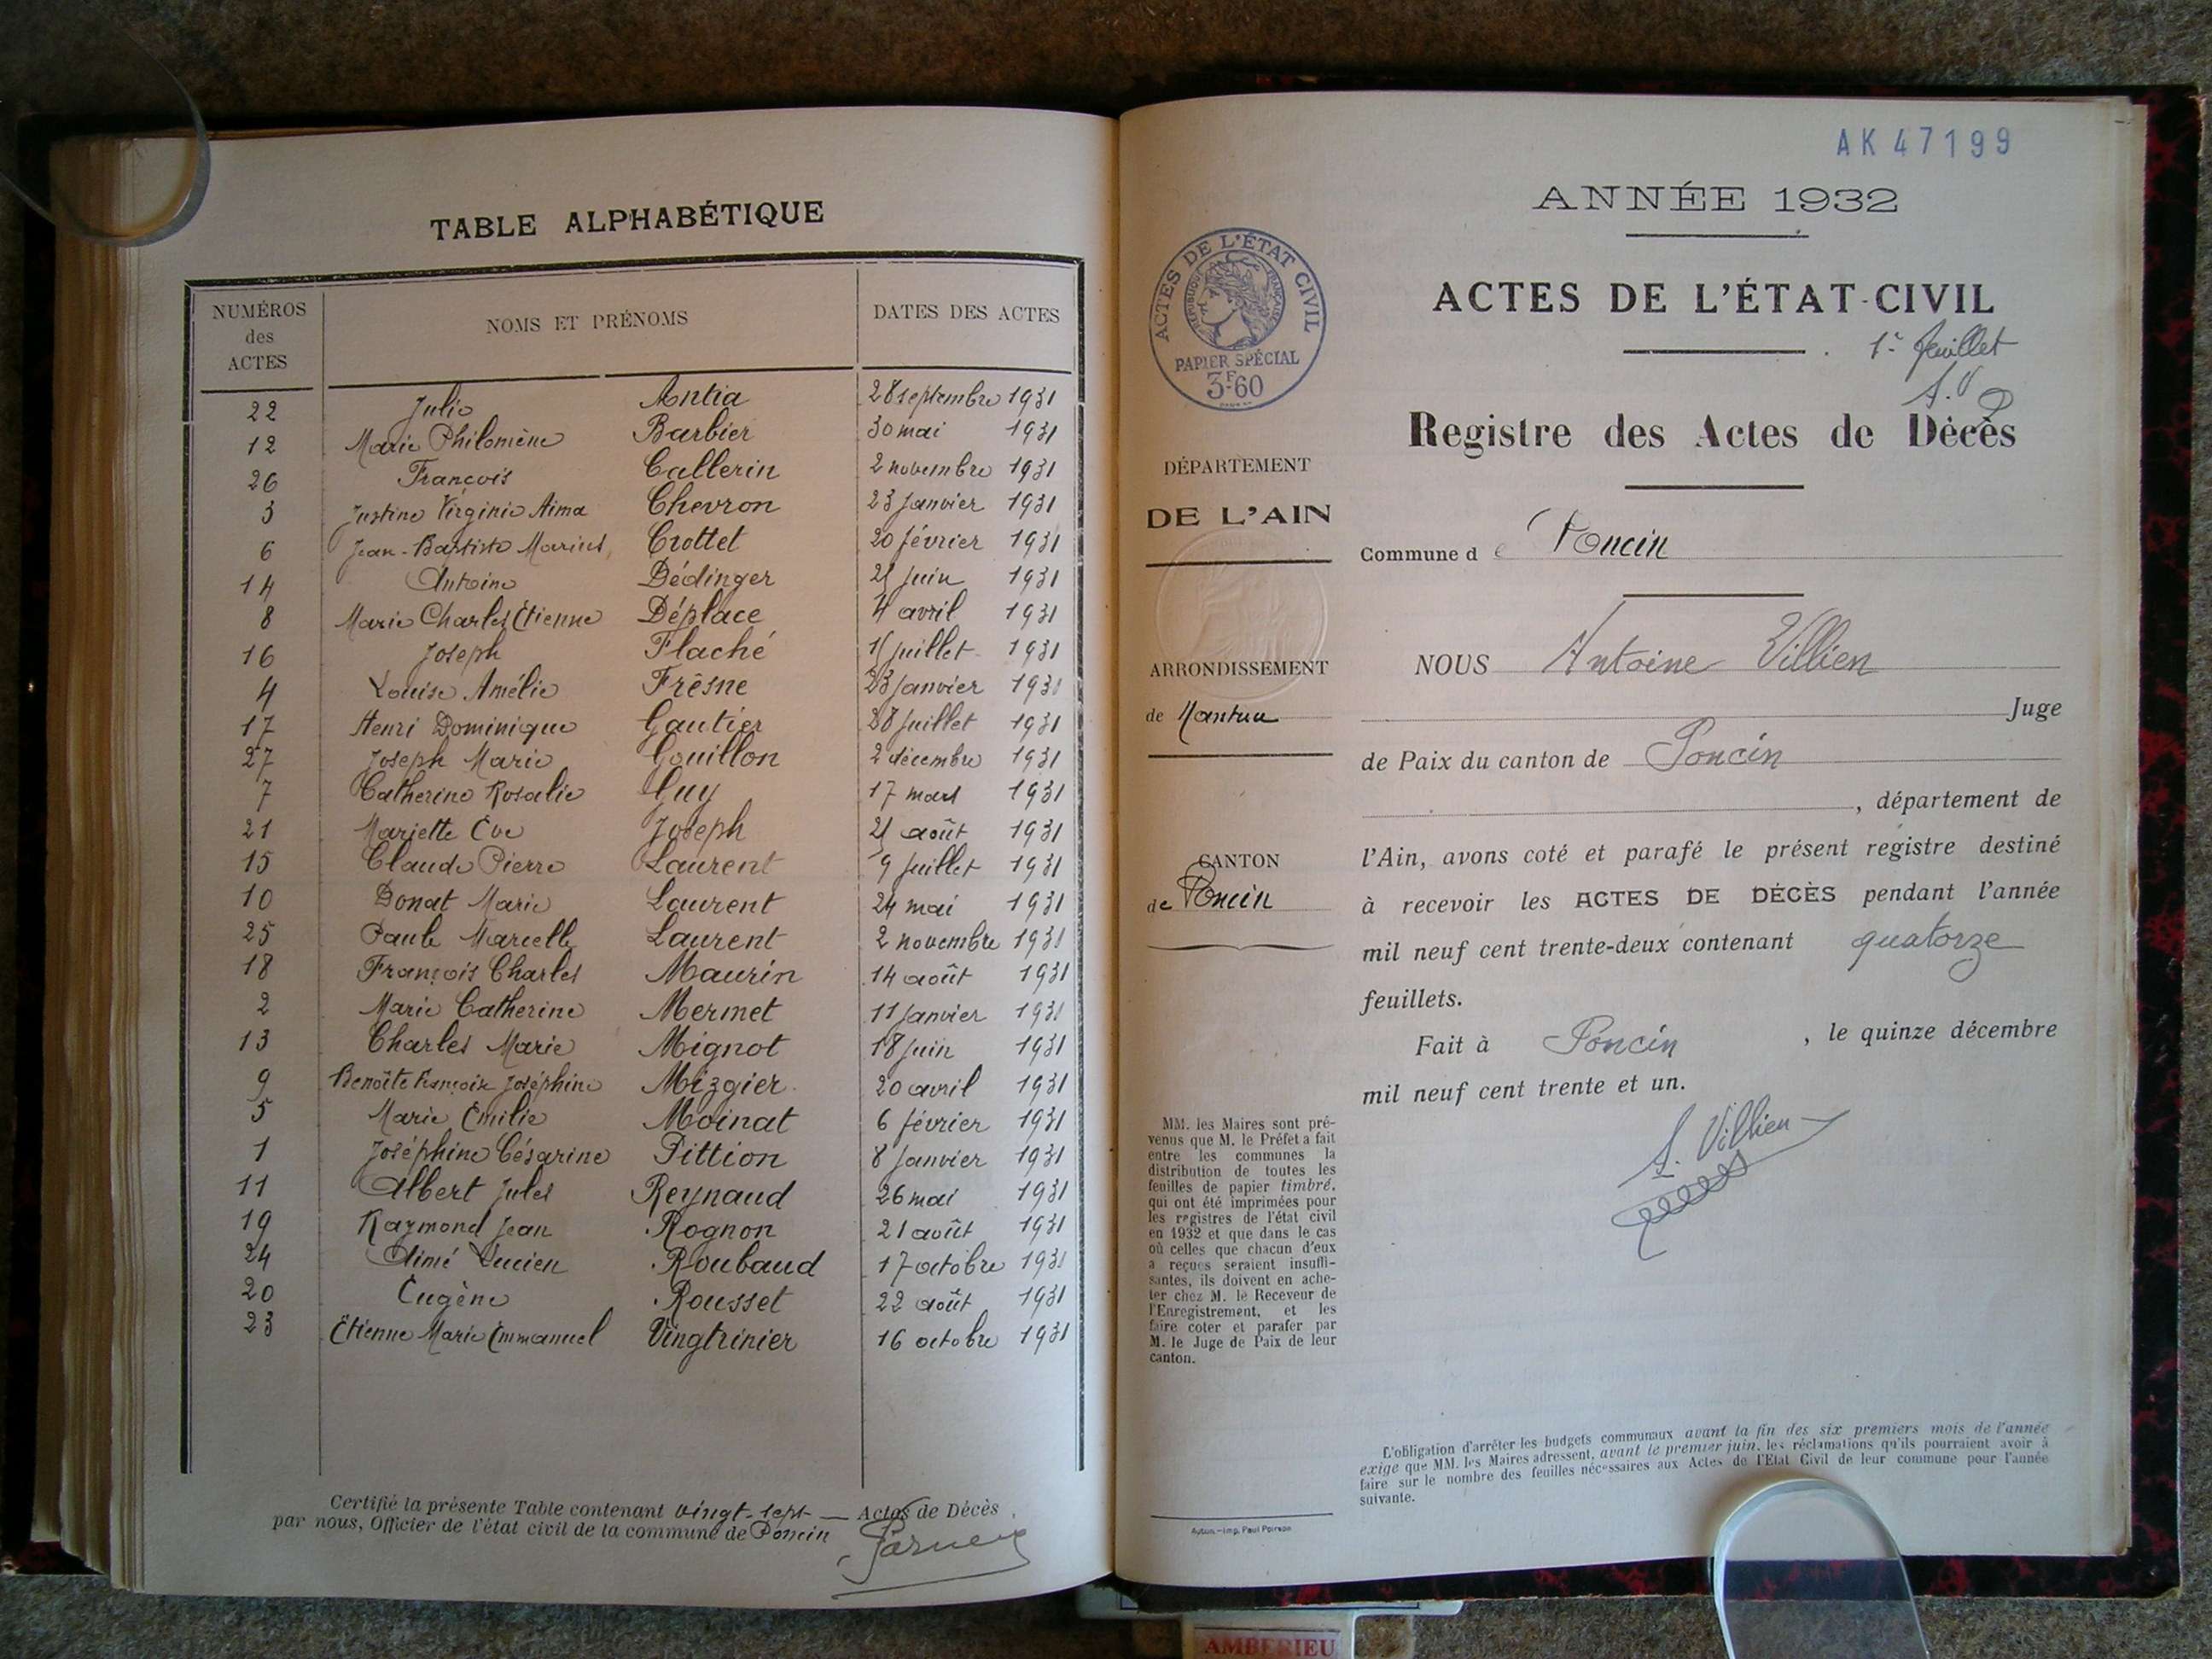 TABLE ALPHABÉTIQUE
NUMÉROS des ACTES NOMS ET PRÉNOMS DATES DES ACTES
22 Julie Antia 28 septembre 1931
12 Marie Philomène Barbier 30 mai 1931
26 François Callerin 2 novembre 1931
3 Justine Virginie Aima Chevron 23 janvier 1931
6 Jean-Baptiste Marius Crottet 20 février 1931
14 Antoine Dédinger 21 juin 1931
8 Marie Charles Étienne Déplace 4 avril 1931
16 Joseph Flaché 11 juillet 1931
4 Louise Amélie Frêsne 23 janvier 1931
17 Henri Dominique Gautier 28 juillet 1931
27 Joseph Marie Gouillon 2 décembre 1931
7 Catherine Rosalie Guy 17 mars 1931
21 Mariette Ève Joseph 21 août 1931
15 Claude Pierre Laurent 9 juillet 1931
10 Donat Marie Laurent 24 mai 1931
25 Paule Marcelle Laurent 2 novembre 1931
18 François Charles Maurin 14 août 1931
2 Marie Catherine Mermet 11 janvier 1931
13 Charles Marie Mignot 18 juin 1931
9 Benoîte Joséphine Mizgier 20 avril 1931
5 Marie Émilie Moinat 6 février 1931
1 Joséphine Césarine Pittion 8 janvier 1931
11 Albert Jules Reynaud 26 mai 1931
19 Raymond Jean Rognon 21 août 1931
24 Aimé Lucien Roubaud 17 octobre 1931
20 Eugène Rousset 22 août 1931
23 Étienne Marie Emmanuel Vingtrinier 16 octobre 1931
Certifié la présente Table contenant vingt-sept Actes de Décès
par nous, Officier de l'état civil de la commune de Poncin
AK 47199
ANNÉE 1932
ACTES DE L'ÉTAT-CIVIL
1er feuillet
A.V
Registre des Actes de Décès
ACTES DE L'ÉTAT CIVIL
RÉPUBLIQUE FRANÇAISE
PAPIER SPÉCIAL
3F60
DÉPARTEMENT
DE L'AIN
ARRONDISSEMENT
de Nantua
CANTON
de Poncin
Commune de Poncin
NOUS Antoine Villien
Juge
de Paix du canton de Poncin
, département de
l'Ain, avons coté et parafé le présent registre destiné
à recevoir les ACTES DE DÉCÈS pendant l'année
mil neuf cent trente-deux contenant quatorze
feuillets.
Fait à Poncin , le quinze décembre
mil neuf cent trente et un.
A. Villien
MM. les Maires sont pré-
venus que M. le Préfet a fait
entre les communes la
distribution de toutes les
feuilles de papier timbré,
qui ont été imprimées pour
les registres de l'état civil
en 1932 et que dans le cas
où celles que chacun d'eux
a reçues seraient insuffi-
santes, ils doivent en ache-
ter chez M. le Receveur de
l'Enregistrement, et les
faire coter et parafer par
M. le Juge de Paix de leur
canton.
L'obligation d'arrêter les budgets communaux avant la fin des six premiers mois de l'année
exige que MM. les Maires adressent, avant le premier juin, les réclamations qu'ils pourraient avoir à
faire sur le nombre des feuilles nécessaires aux Actes de l'Etat Civil de leur commune pour l'année
suivante.
Autun.-Imp. Paul Poirson
AMBERIEU